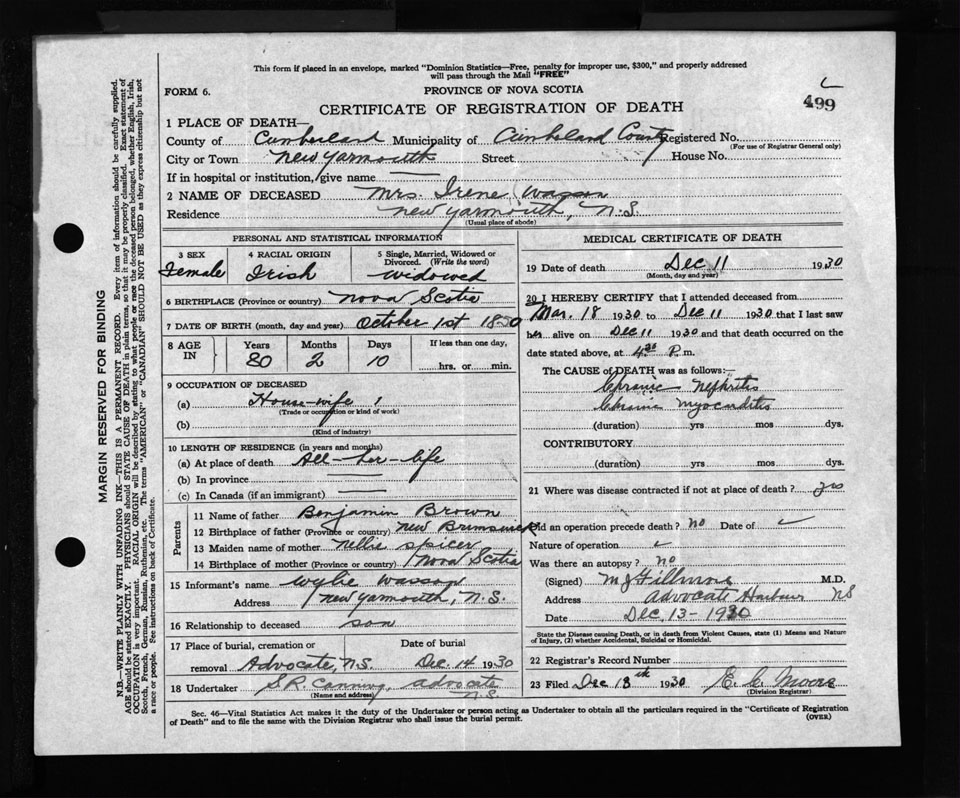 This form if placed in an envelope, marked "Dominion Statistics—Free, penalty for improper use, $300," and properly addressed
will pass through the Mail "FREE"
FORM 6.
PROVINCE OF NOVA SCOTIA
499
CERTIFICATE OF REGISTRATION OF DEATH
1 PLACE OF DEATH—
County of Cumberland Municipality of Cumberland County Registered No.
(For use of Registrar General only)
City or Town New Yarmouth Street House No.
If in hospital or institution, give name
2 NAME OF DECEASED Mrs. Irene Wasson
Residence New Yarmouth, N.S.
(Usual place of abode)
PERSONAL AND STATISTICAL INFORMATION
3 SEX
Female
4 RACIAL ORIGIN
Irish
5 Single, Married, Widowed or
Divorced. (Write the word)
Widowed
6 BIRTHPLACE (Province or country) Nova Scotia
7 DATE OF BIRTH (month, day and year) October 1st 1850
8 AGE
IN
Years Months Days
80 2 10
If less than one day,
hrs. or min.
9 OCCUPATION OF DECEASED
(a) House-wife
(Trade or occupation or kind of work)
(b)
(Kind of industry)
10 LENGTH OF RESIDENCE (in years and months)
(a) At place of death All-her-life
(b) In province
(c) In Canada (if an immigrant)
Parents
11 Name of father Benjamin Brown
12 Birthplace of father (Province or country) New Brunswick
13 Maiden name of mother Nellie Spicer
14 Birthplace of mother (Province or country) Nova Scotia
15 Informant's name Wylie Wasson
Address New Yarmouth, N.S.
16 Relationship to deceased son
17 Place of burial, cremation or
Date of burial
removal Advocate, N.S. Dec. 14 1930
18 Undertaker S.R. Canning, Advocate
(Name and address) N.S.
MEDICAL CERTIFICATE OF DEATH
19 Date of death Dec 11 1930
(Month, day and year)
20 I HEREBY CERTIFY that I attended deceased from
Mar. 18 1930 to Dec 11 1930 that I last saw
her alive on Dec 11 1930 and that death occurred on
date stated above, at 4.30 P. m.
The CAUSE of DEATH was as follows:—
Chronic Nephritis
Chronic Myocarditis
(duration) yrs mos dys.
CONTRIBUTORY
(duration) yrs mos dys.
21 Where was disease contracted if not at place of death? yes
Did an operation precede death? no Date of
Nature of operation
Was there an autopsy? no
(Signed) M J Fillmore M.D.
Address Advocate Harbour NS
Date Dec 13 - 1930
State the Disease causing Death, or in death from Violent Causes, state (1) Means and Nature
of Injury, (2) whether Accidental, Suicidal or Homicidal.
22 Registrar's Record Number
23 Filed Dec 13th 1930 E. C. Moore
(Division Registrar)
Sec. 46—Vital Statistics Act makes it the duty of the Undertaker or person acting as Undertaker to obtain all the particulars required in the "Certificate of Registration
of Death" and to file the same with the Division Registrar who shall issue the burial permit.
(OVER)
MARGIN RESERVED FOR BINDING
N.B.—WRITE PLAINLY WITH UNFADING INK—THIS IS A PERMANENT RECORD. Every item of information should be carefully supplied.
AGE should be stated EXACTLY. PHYSICIANS should STATE CAUSE OF DEATH in plain terms, so that it may be properly classified. Exact statement of
OCCUPATION is very important. RACIAL ORIGIN will be described by stating to what people or race the deceased person belonged, whether English, Irish,
Scotch, French, German, Russian, Ruthenian, etc. The terms "AMERICAN" or "CANADIAN" SHOULD NOT BE USED as they express citizenship but not
a race or people. See instructions on back of Certificate.